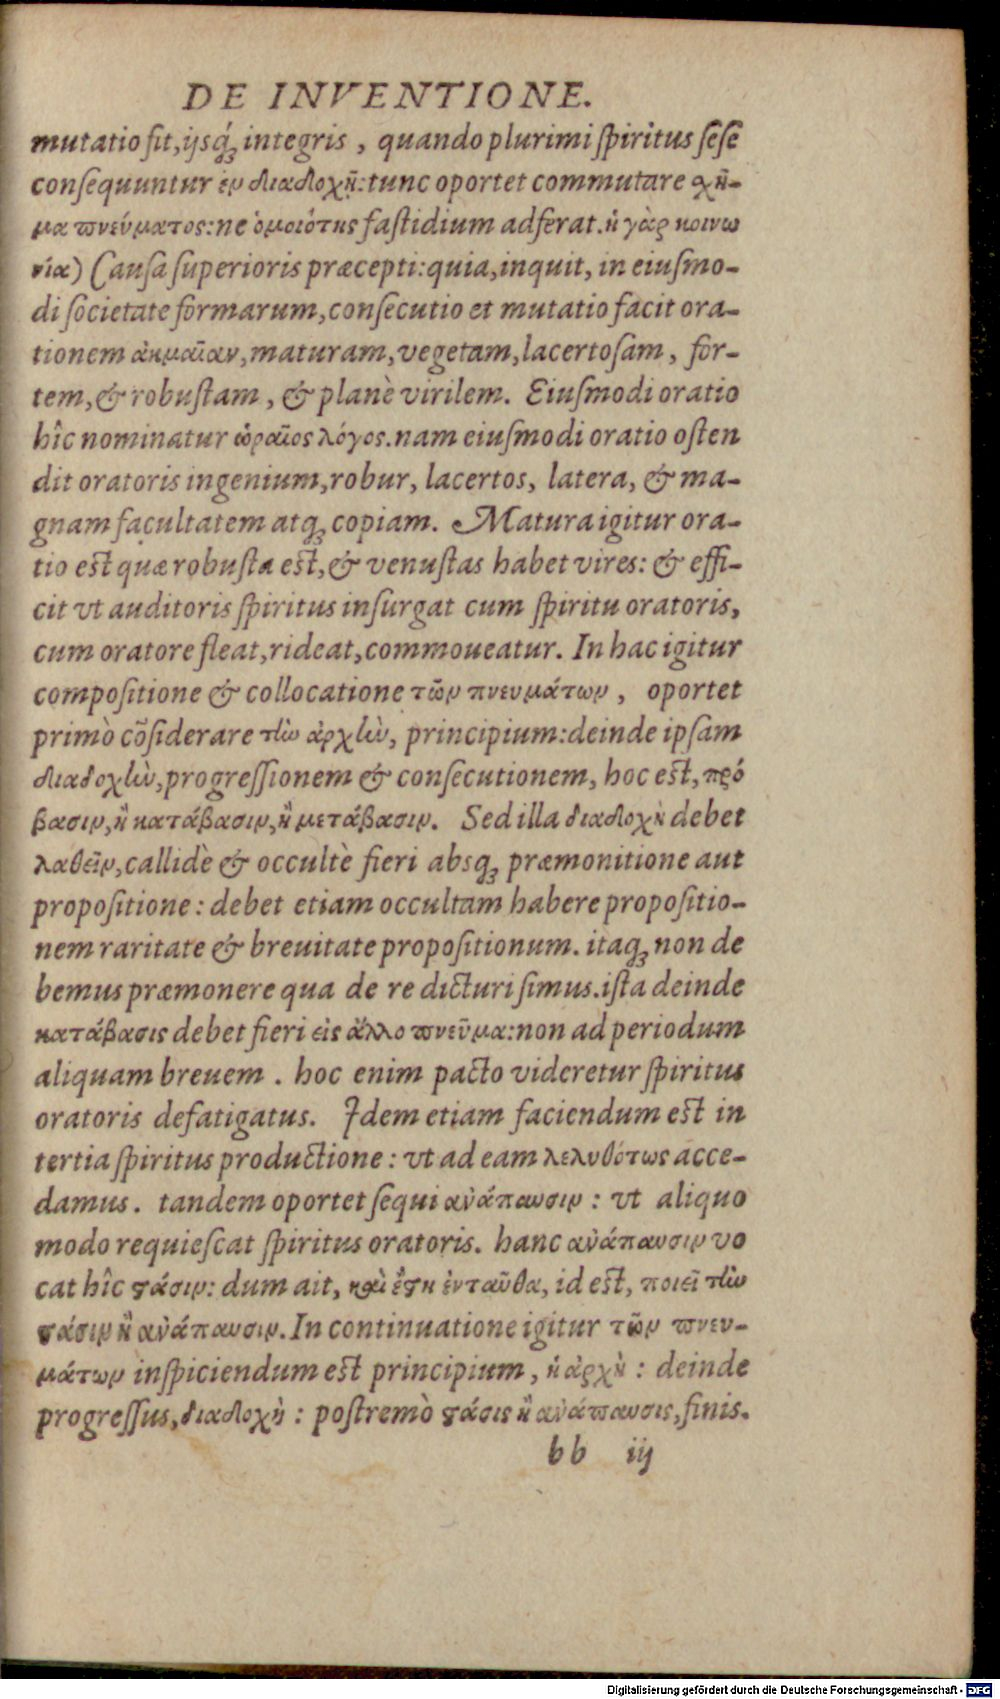 DE INVENTIONE.
mutatio fit, ijsq́ꝫ integris, quando plurimi ſpiritus ſeſe
conſequuntur ἐν διαδοχῇ: tunc oportet commutare χῆ-
μα πνεύματος: ne ὁμοιότης faſtidium adferat. ἡ γὰρ κοινω
νία) Cauſa ſuperioris præcepti: quia, inquit, in eiuſmo-
di ſocietate formarum, conſecutio et mutatio facit ora-
tionem ἀκμαῖαν, maturam, vegetam, lacertoſam, for-
tem, & robuſtam, & planè virilem. Eiuſmodi oratio
hîc nominatur ὡραῖος λόγος. nam eiuſmodi oratio oſten
dit oratoris ingenium, robur, lacertos, latera, & ma-
gnam facultatem atqꝫ copiam. Matura igitur ora-
tio eſt quæ robuſta eſt, & venuſtas habet vires: & effi-
cit vt auditoris ſpiritus inſurgat cum ſpiritu oratoris,
cum oratore fleat, rideat, commoueatur. In hac igitur
compoſitione & collocatione τῶν πνευμάτων, oportet
primò cõſiderare τὴν ἀρχὴν, principium: deinde ipſam
διαδοχὴν, progreſſionem & conſecutionem, hoc eſt, πρό
βασιν, ἢ κατάβασιν, ἢ μετάβασιν. Sed illa διαδοχὴ debet
λαθεῖν, callidè & occultè fieri absqꝫ præmonitione aut
propoſitione: debet etiam occultam habere propoſitio-
nem raritate & breuitate propoſitionum. itaqꝫ non de
bemus præmonere qua de re dicturi ſimus. iſta deinde
κατάβασις debet fieri εἰς ἄλλο πνεῦμα: non ad periodum
aliquam breuem. hoc enim pacto videretur ſpiritus
oratoris defatigatus. Idem etiam faciendum eſt in
tertia ſpiritus productione: vt ad eam λεληθότως acce-
damus. tandem oportet ſequi ἀνάπαυσιν: vt aliquo
modo requieſcat ſpiritus oratoris. hanc ἀνάπαυσιν vo
cat hîc ϛάσιν: dum ait, καὶ ἔϛη ἐνταῦθα, id eſt, ποιεῖ τὴν
ϛάσιν ἢ ἀνάπαυσιν. In continuatione igitur τῶν πνευ-
μάτων inſpiciendum eſt principium, ἡ ἀρχὴ: deinde
progreſſus, διαδοχὴ: poſtremò ϛάσις ἢ ἀνάπαυσις, finis.
bb iij
Digitalisierung gefördert durch die Deutsche Forschungsgemeinschaft - DFG